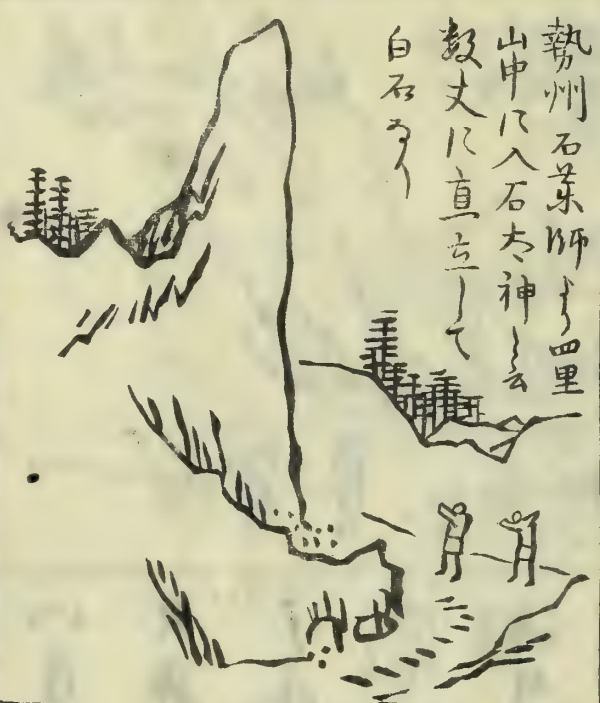 勢州石薬師より四里
山中に入石太神と云
数丈に直立して
白石なり